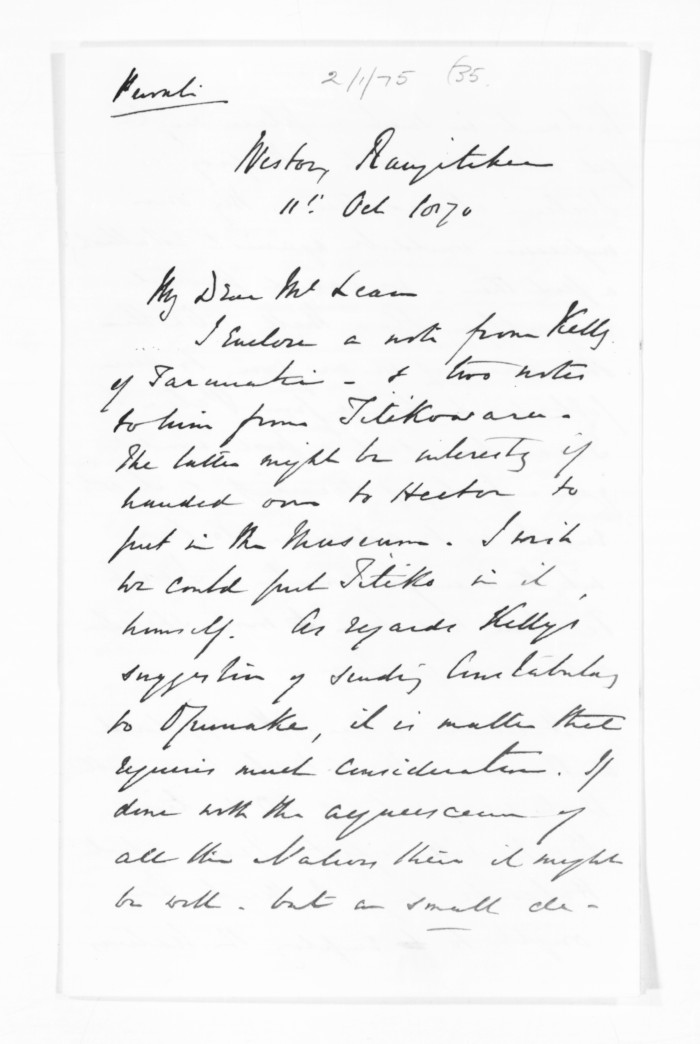 Private
2/1/75 (35.
Westoe, Rangitikei
11th Oct 1870
My Dear Mc Lean
I Enclose a note from Kelly
of Taranaki - & two notes
to him from Titikowaru -
The latter might be interestg if
handed over to Hector to
put in the Museum - I wish
we could put Titiko in it,
himself. As regards Kelly's
suggestion of sending Constabulary
to Opunake, it is matter that
requires much consideration. If
done with the acquiescence of
all the Natives there it might
be well - but a small de-